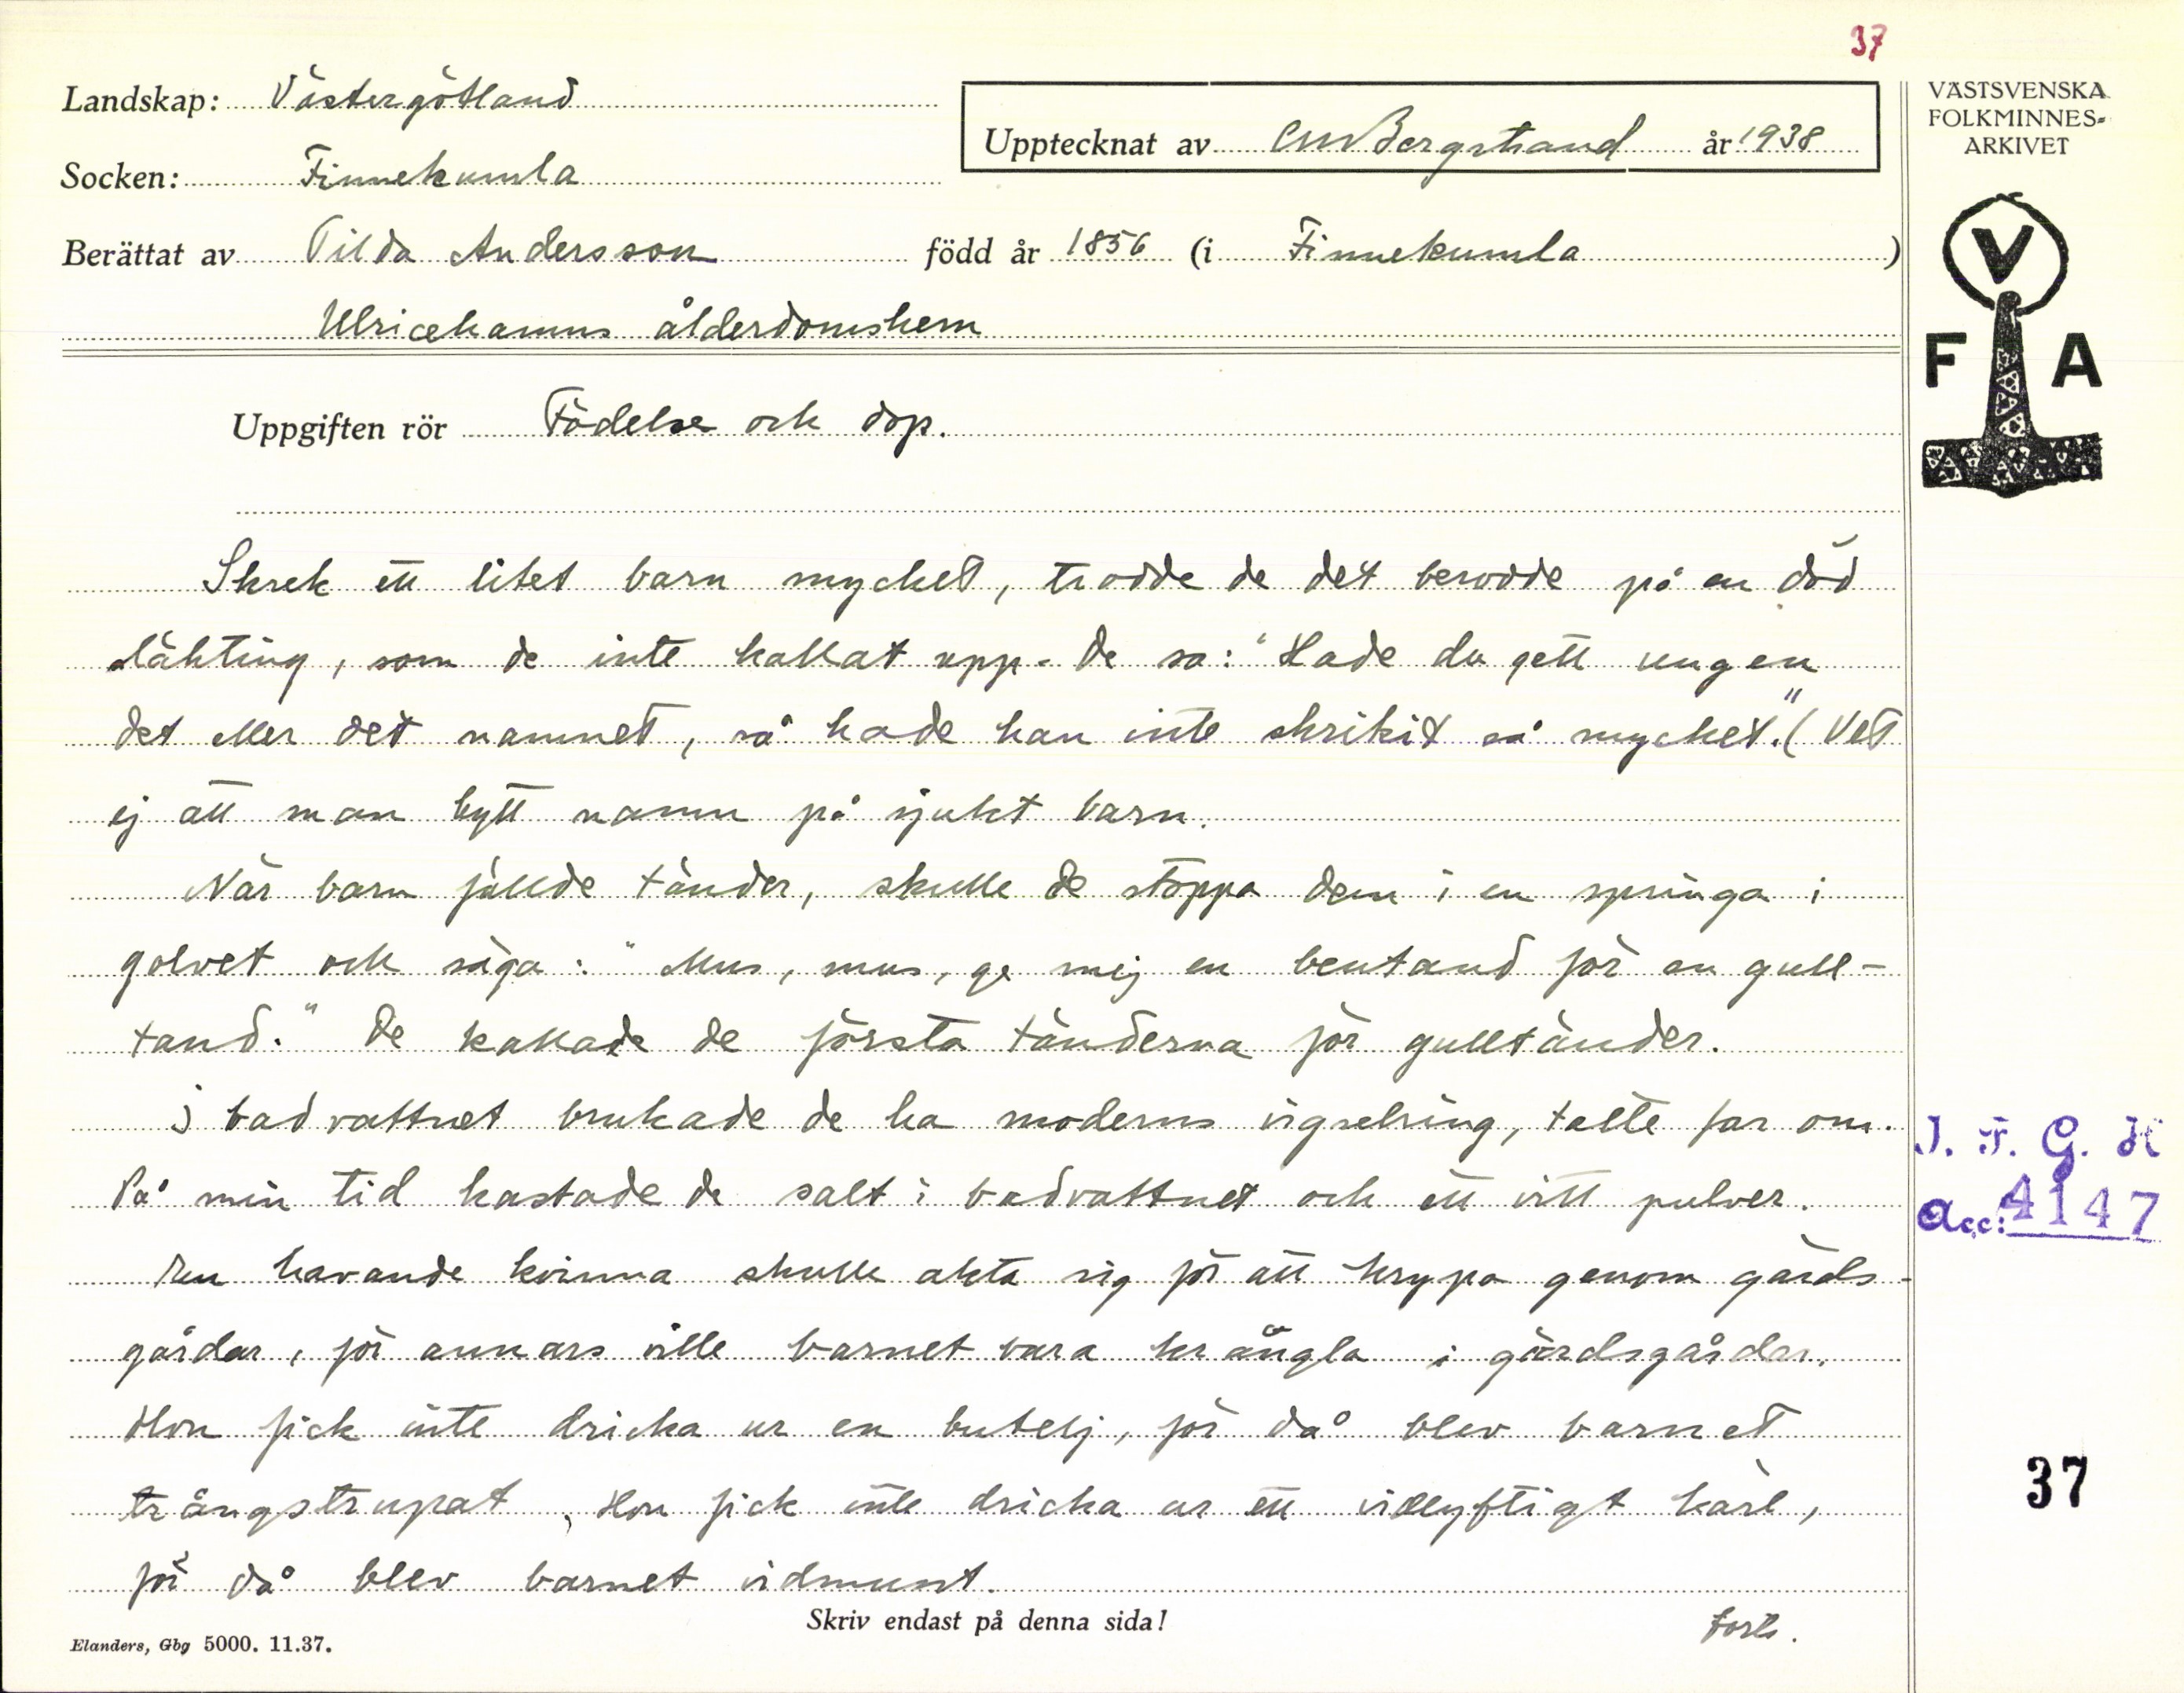 37
Landskap: Västergötland
Upptecknat av CM Bergstrand år 1938
Socken: Finnekumla
Berättat av Tilda Andersson född år 1856 (i Finnekumla)
Ulricehamns ålderdomshem
VÄSTSVENSKA
FOLKMINNES-
ARKIVET
V
F A
Uppgiften rör Födelse och dop.
Skrek ett litet barn mycket, trodde de det berodde på en död
släkting, som de inte kallat upp. De sa: "Hade du gett ungen
det eller det namnet, så hade han inte skrikit så mycket." (Vet
ej att man bytt namn på sjukt barn.
När barn fällde tänder, skulle de stoppa dem i en springa i
golvet och säga: "Mus, mus, ge mej en bentand för en gull-
tand." De kallade de första tänderna för gulltänder.
I badvattnet brukade de ha moderns vigselring, talte far om.
På min tid kastade de salt i badvattnet och ett vitt pulver.
En havande kvinna skulle akta sig för att krypa genom gärds-
gårdar, för annars ville barnet vara krångla i gärdsgårdar.
Hon fick inte dricka ur en butelj, för då blev barnet
trångstrupat. Hon fick inte dricka ur ett vidlyftigt kärl,
för då blev barnet vidmunt.
I. F. G. H
Acc: 4147
37
Skriv endast på denna sida!
Forts.
Elanders, Gbg 5000. 11.37.